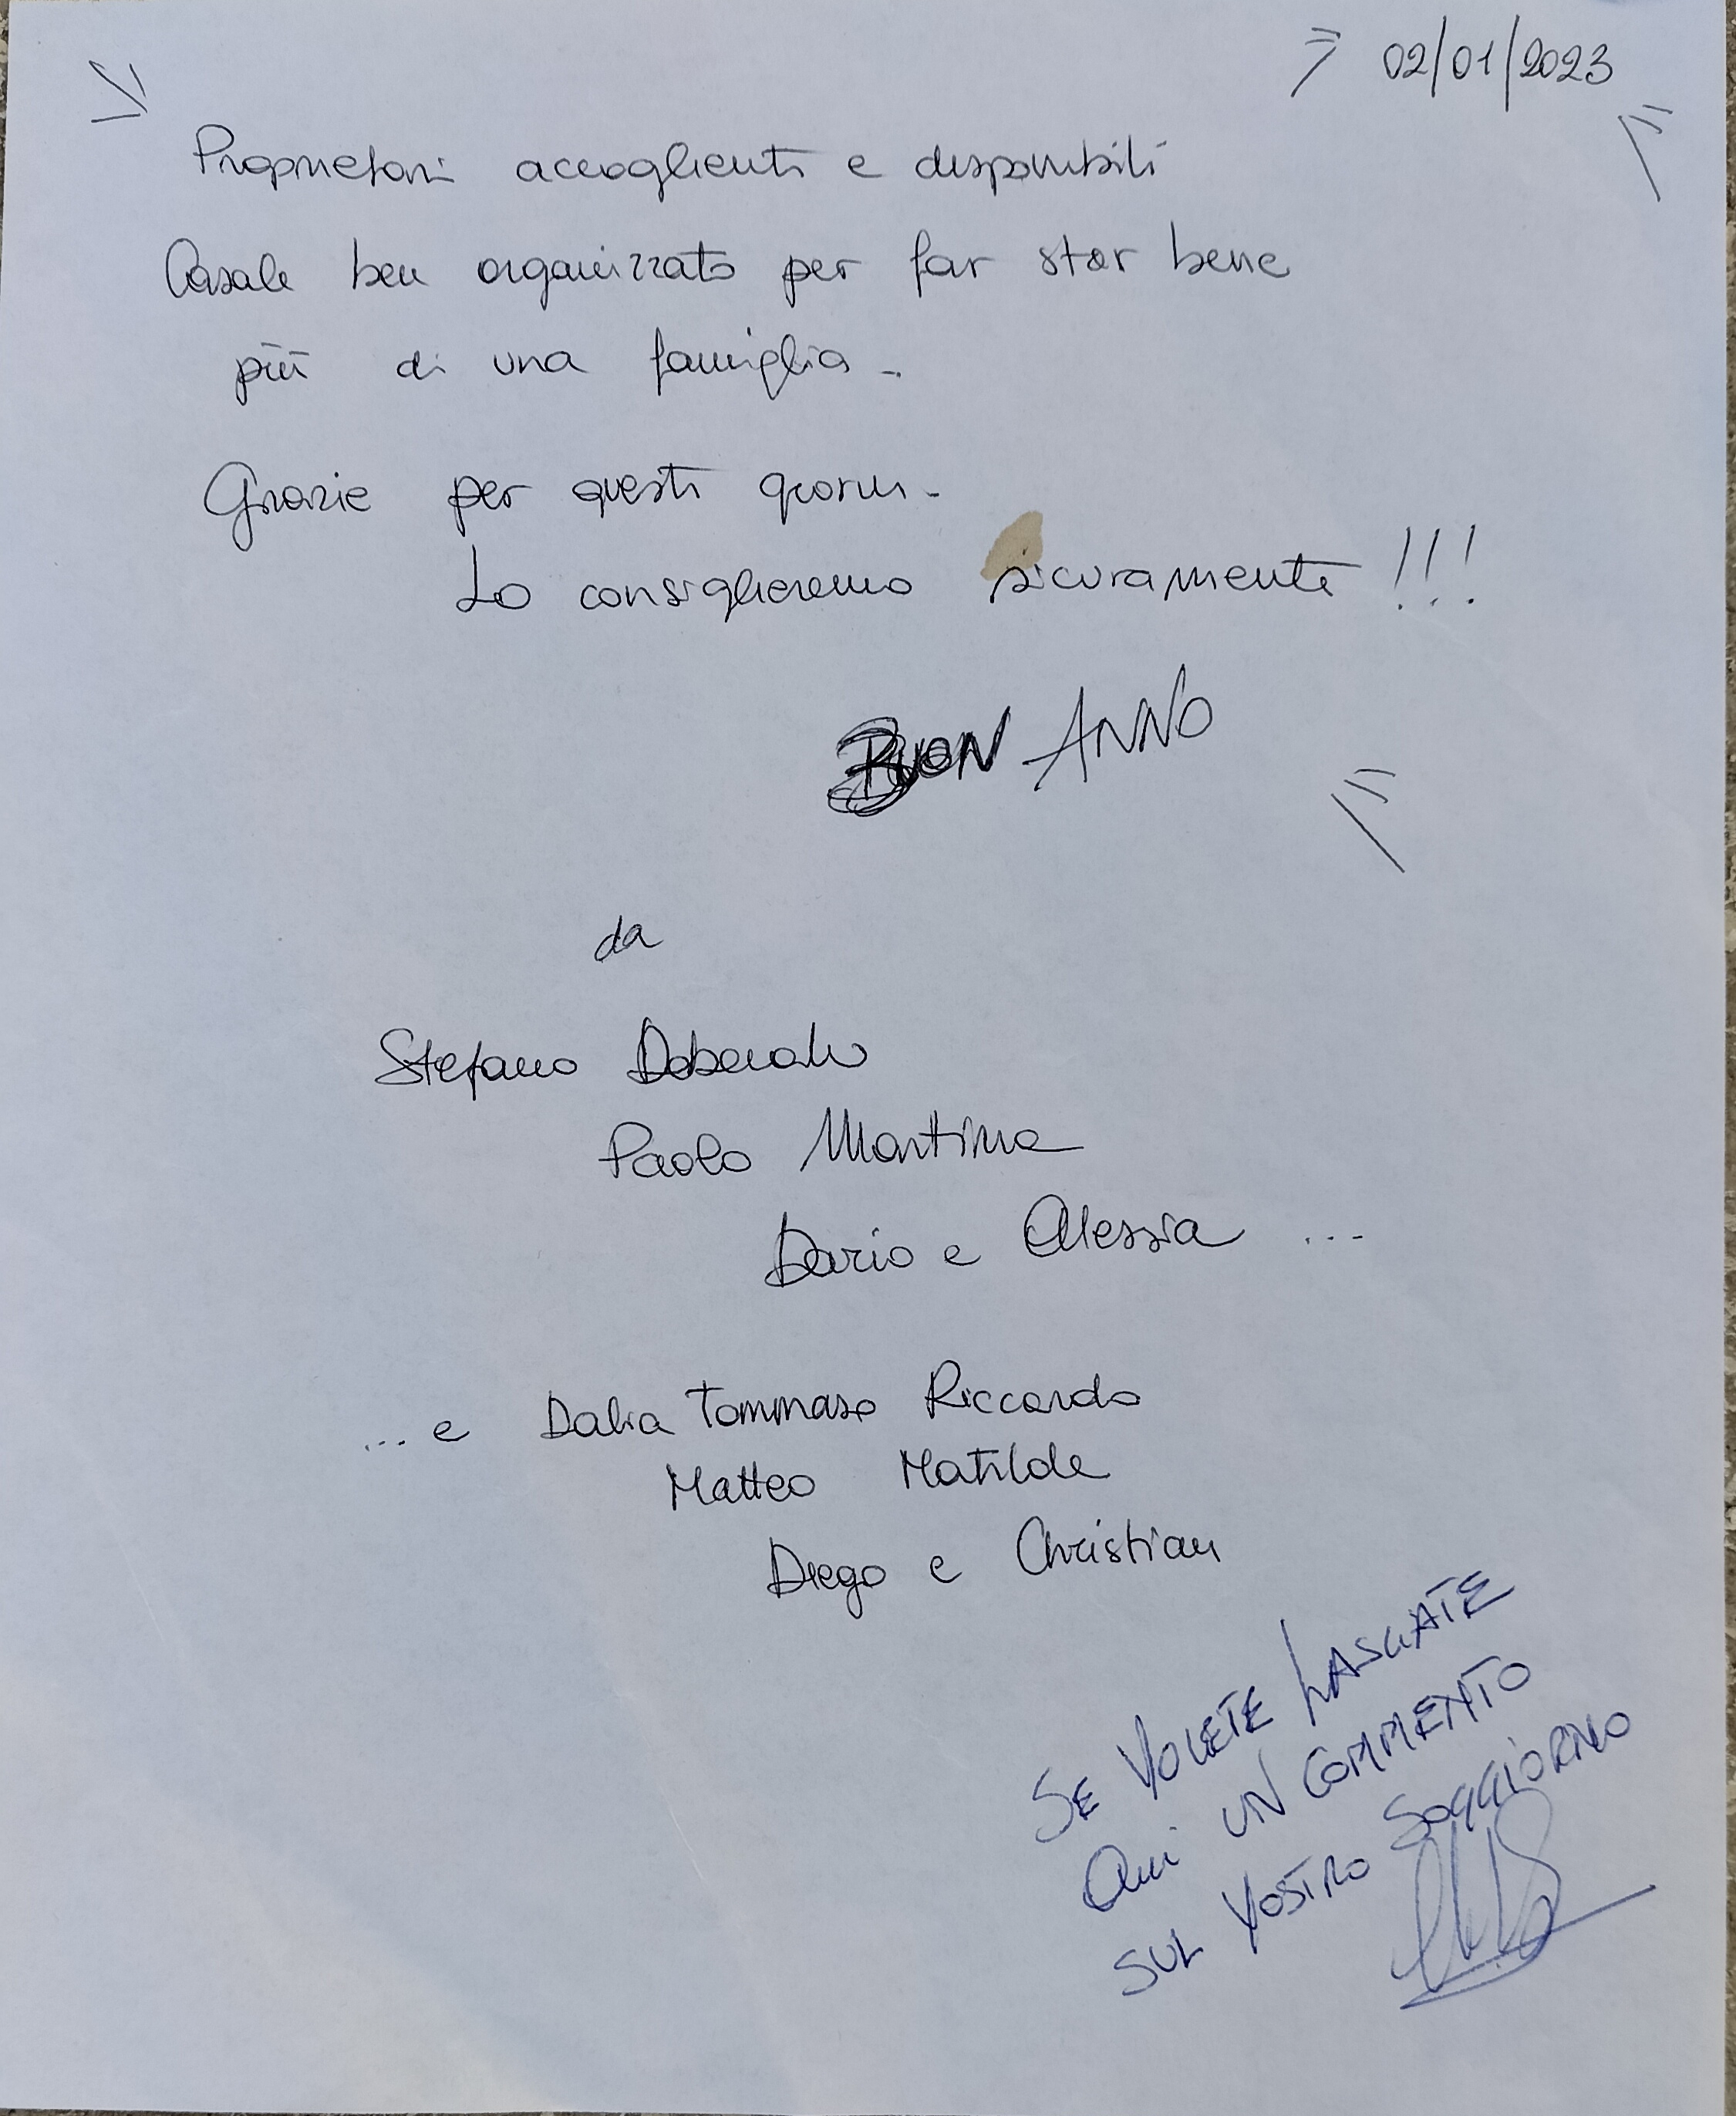 02/01/2023
Proprietari accoglienti e disponibili
Casale ben organizzato per far star bene
più di una famiglia.
Grazie per questi giorni.
Lo consiglieremo sicuramente !!!
BUON ANNO
da
Stefano Deborah
Paolo Martina
Dario e Alessia ...
... e Dalia Tommaso Riccardo
Matteo Matilde
Diego e Christian
SE VOLETE LASCIATE
QUI UN COMMENTO
SUL VOSTRO SOGGIORNO